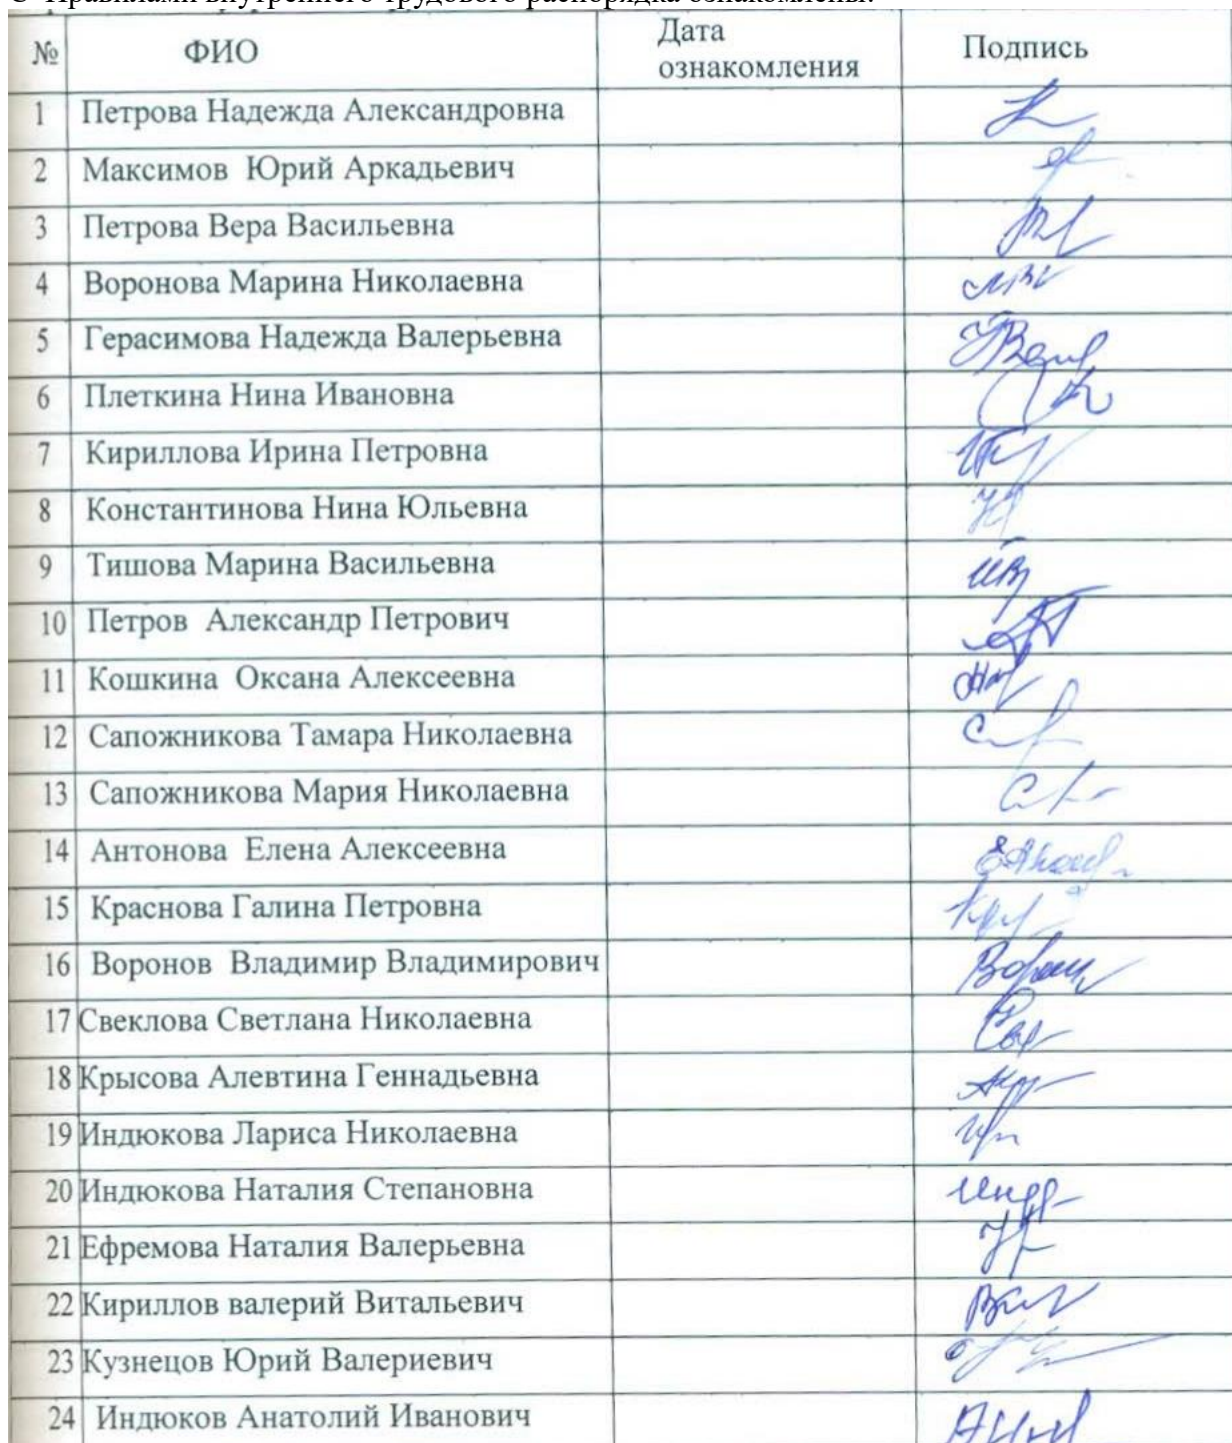 С Правилами внутреннего трудового распорядка ознакомлены:
№ ФИО Дата ознакомления Подпись
1 Петрова Надежда Александровна
2 Максимов Юрий Аркадьевич
3 Петрова Вера Васильевна
4 Воронова Марина Николаевна
5 Герасимова Надежда Валерьевна
6 Плеткина Нина Ивановна
7 Кириллова Ирина Петровна
8 Константинова Нина Юльевна
9 Тишова Марина Васильевна
10 Петров Александр Петрович
11 Кошкина Оксана Алексеевна
12 Сапожникова Тамара Николаевна
13 Сапожникова Мария Николаевна
14 Антонова Елена Алексеевна
15 Краснова Галина Петровна
16 Воронов Владимир Владимирович
17 Свеклова Светлана Николаевна
18 Крысова Алевтина Геннадьевна
19 Индюкова Лариса Николаевна
20 Индюкова Наталия Степановна
21 Ефремова Наталия Валерьевна
22 Кириллов валерий Витальевич
23 Кузнецов Юрий Валериевич
24 Индюков Анатолий Иванович